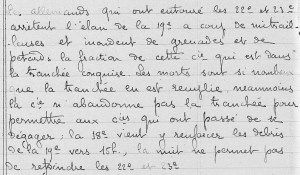 les allemands qui ont entouré les 22e et 23e
arretent l'élan de la 19e a coup de mitrail-
leuses et inondent de grenades et de
petards la fraction de cette cie qui est dans
la tranchée conquise. Les morts sont si nombreux
que la tranchée en est remplie, neanmoins
la cie n'abandonne pas la tranchée pour
permettre aux cies qui ont passé de se
dégager; la 18e vient y renforcer les debris
de la 19e vers 15h, la nuit ne permet pas
de rejoindre les 22e et 23e